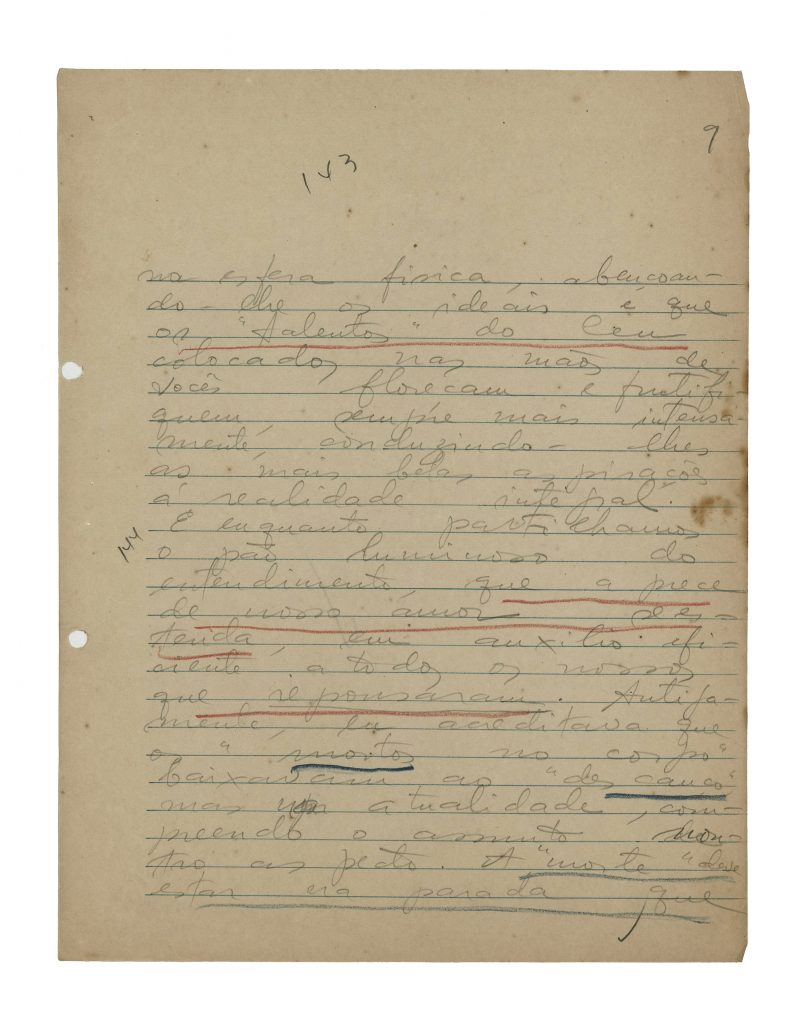 9
143
na esfera fisica, abençoan-
do-lhe os ideáis e que
os "talentos" do Céu
colocados nas mãos de
vocês floreçam e frutifi-
quem, sempre mais intensa-
mente, conduzindo-lhes
as mais belas aspirações
á realidade integral.
E enquanto partilhamos
144
o pão luminoso do
entendimento, que a prece
de nosso amor se es-
tenda, em auxilio efi-
ciente, a todos os nossos
que repousaram. Antiga-
mente, eu acreditava que
os "mortos no corpo"
baixavam ao "descanço",
mas na atualidade, com-
preendo o assunto
tro aspecto. A "morte" deve
estar na parada que